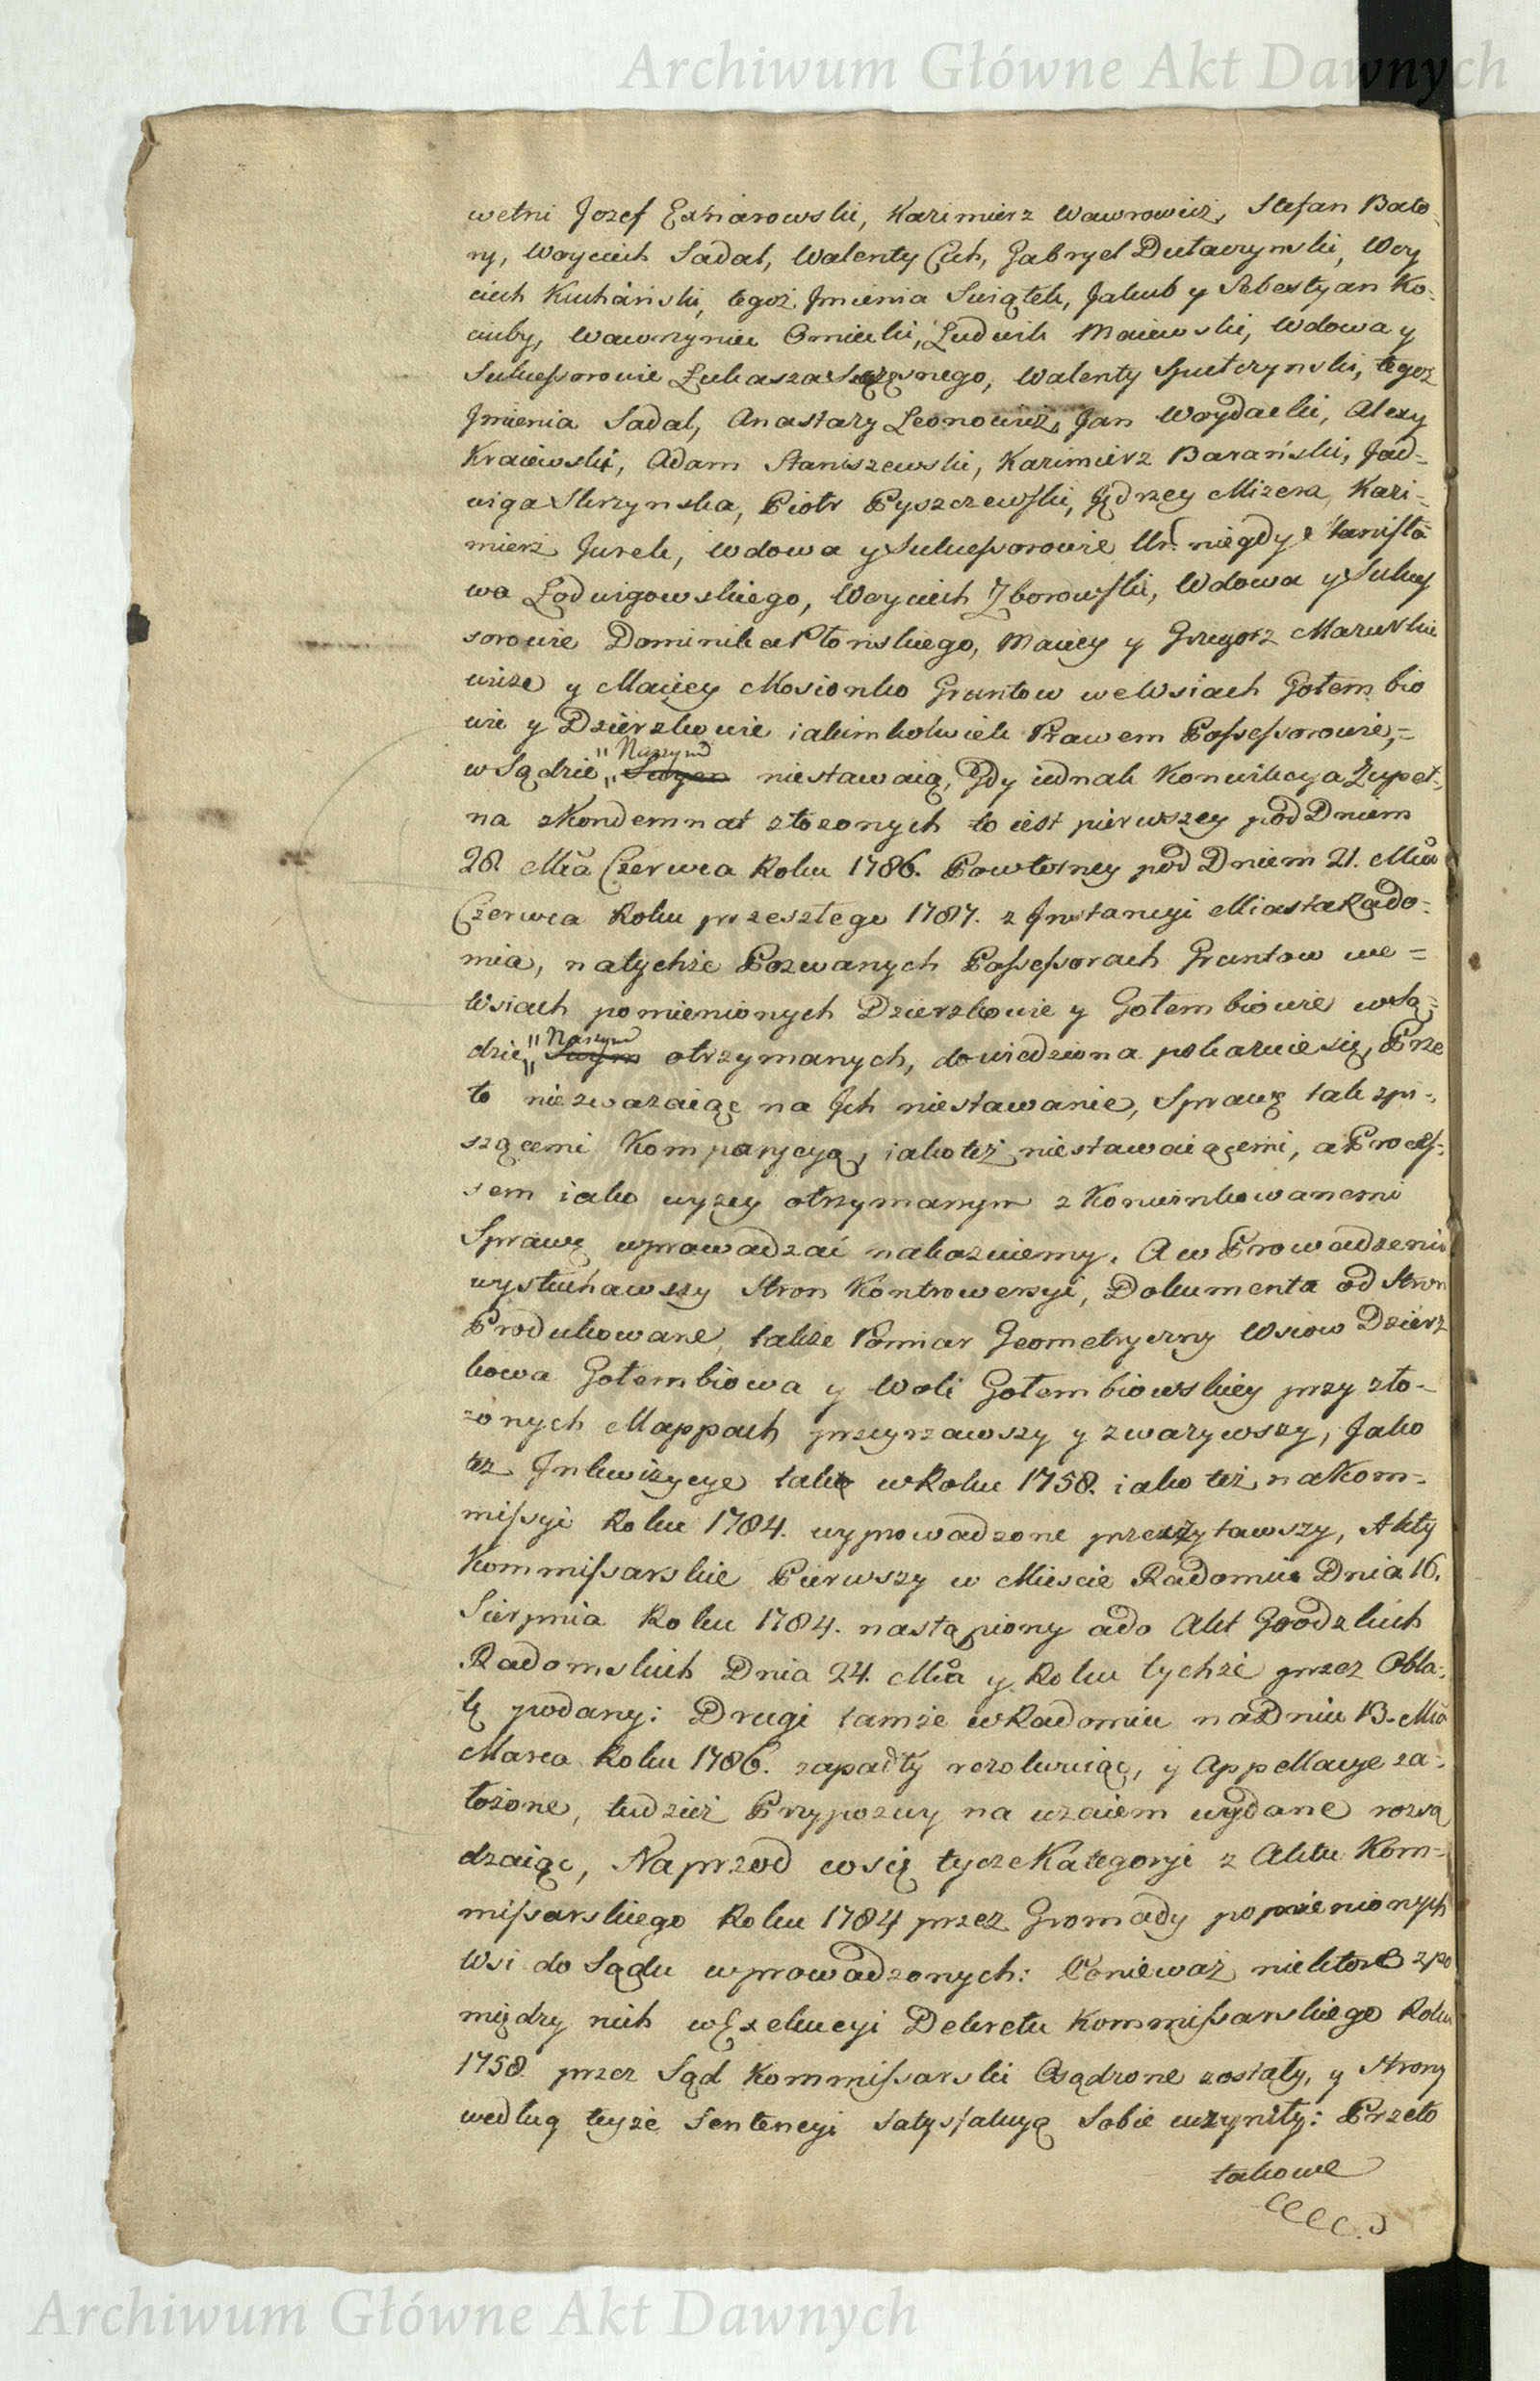 Archiwum Główne Akt Dawnych
wetni Jozef Exnarowski, Kazimierz Wawrowicz, Stefan Bato-
ry, Woyciech Sadal, Walenty Cich, Gabryel Dutaczynski, Woy
ciech Kuchański, tegoż Jmienia Swiątek, Jakub y Sebestyan Ko-
ciuby, Wawrzyniec Omiecki, Ludwik Maiewski, Wdowa y
Sukceßorowie Łukasza Szczęsnego, Walenty Spulczynski, tegoż
Jmienia Sadal, Anastazy Leonowicz, Jan Woydacki, Alexy
Kraiewski, Adam Staniszewski, Kazimierz Barański, Jad-
wiga Skrzynska, Piotr Pyszczewski, Jędrzey Mizera, Kazi-
mierz Jurek, Wdowa y Sukceßorowie Ur. niegdy Stanisła
wa Ładwigowskiego, Woyciech Zborowski, Wdowa y Sukceß
sorowie Dominika Płońskiego, Maciey y Grzegorz Mazurkie
wicze y Maciey Mosionko Gruntow we Wsiach Gołembio
wie y Dzierzkowie iakimkolwiek Prawem Poßeßorowie,=
w Sądzie „ Naszym
Swym niestawaią, Gdy iednak Konwikcya Zupeł-
na z Kondemnat złożonych to iest pierwszey pod Dniem
28. Mca Czerwca Roku 1786. Powtorney pod Dniem 21. Mca
Czerwca Roku przeszłego 1787. z Jnstancyi Miasta Rado-
mia, natychże Pozwanych Poßeßorach Gruntow we =
Wsiach pomienionych Dzierzkowie y Gołembiowie w Są-
dzie „ Naszym
Swym otrzymanych, dowiedziona pokazuie się, Prze
to niezważaiąc na Jch niestawanie, Sprawę tak zpi-
szącemi Komparycyą, iako też niestawaiącemi, a Proceß-
sem iako wyżey otrzymanym z Konwinkowanemi
Sprawę wprowadzać nakazuiemy. A w Prowadzeniu
wysłuchawszy Stron Kontrowersyi, Dokumenta od Stron
Produkowane, także Pomiar Geometryczny Wsiow Dzierz
kowa Gołembiowa y Woli Gołembiowskiey przy zło-
żonych Mappach przeyrzawszy y zważywszy, Jako
też Jnkwizycye tak w Roku 1758. iako też na Kom-
mißyi Roku 1784. wyprowadzone przeczytawszy, Akty
Kommißarskie Pierwszy w Miescie Radomiu Dnia 16.
Sierpnia Roku 1784. nastąpiony a do Akt Grodzkich
Radomskich Dnia 24. Mca y Roku tychże przez Obla-
tę podany: Drugi tamże w Radomiu na Dniu 13. Mca
Marca Roku 1786. zapadły rezolwuiąc, y Appellacye za-
łożone, tudzież Przypozwy na wzaiem wydane rozsą
dzaiąc, Naprzod co się tycze Kategoryi z Aktu Kom-
mißarskiego Roku 1784 przez Gromady pomienionych
Wsi do Sądu wprowadzonych: Ponieważ niektore zpo
między nich w Exekucyi Dekretu Kommißarskiego Roku
1758. przez Sąd Kommißarski Osądzone zostały, y Strony
według teyże Sentencyi Satysfakcyą Sobie uczyniły: Przeto
takowe
Archiwum Główne Akt Dawnych